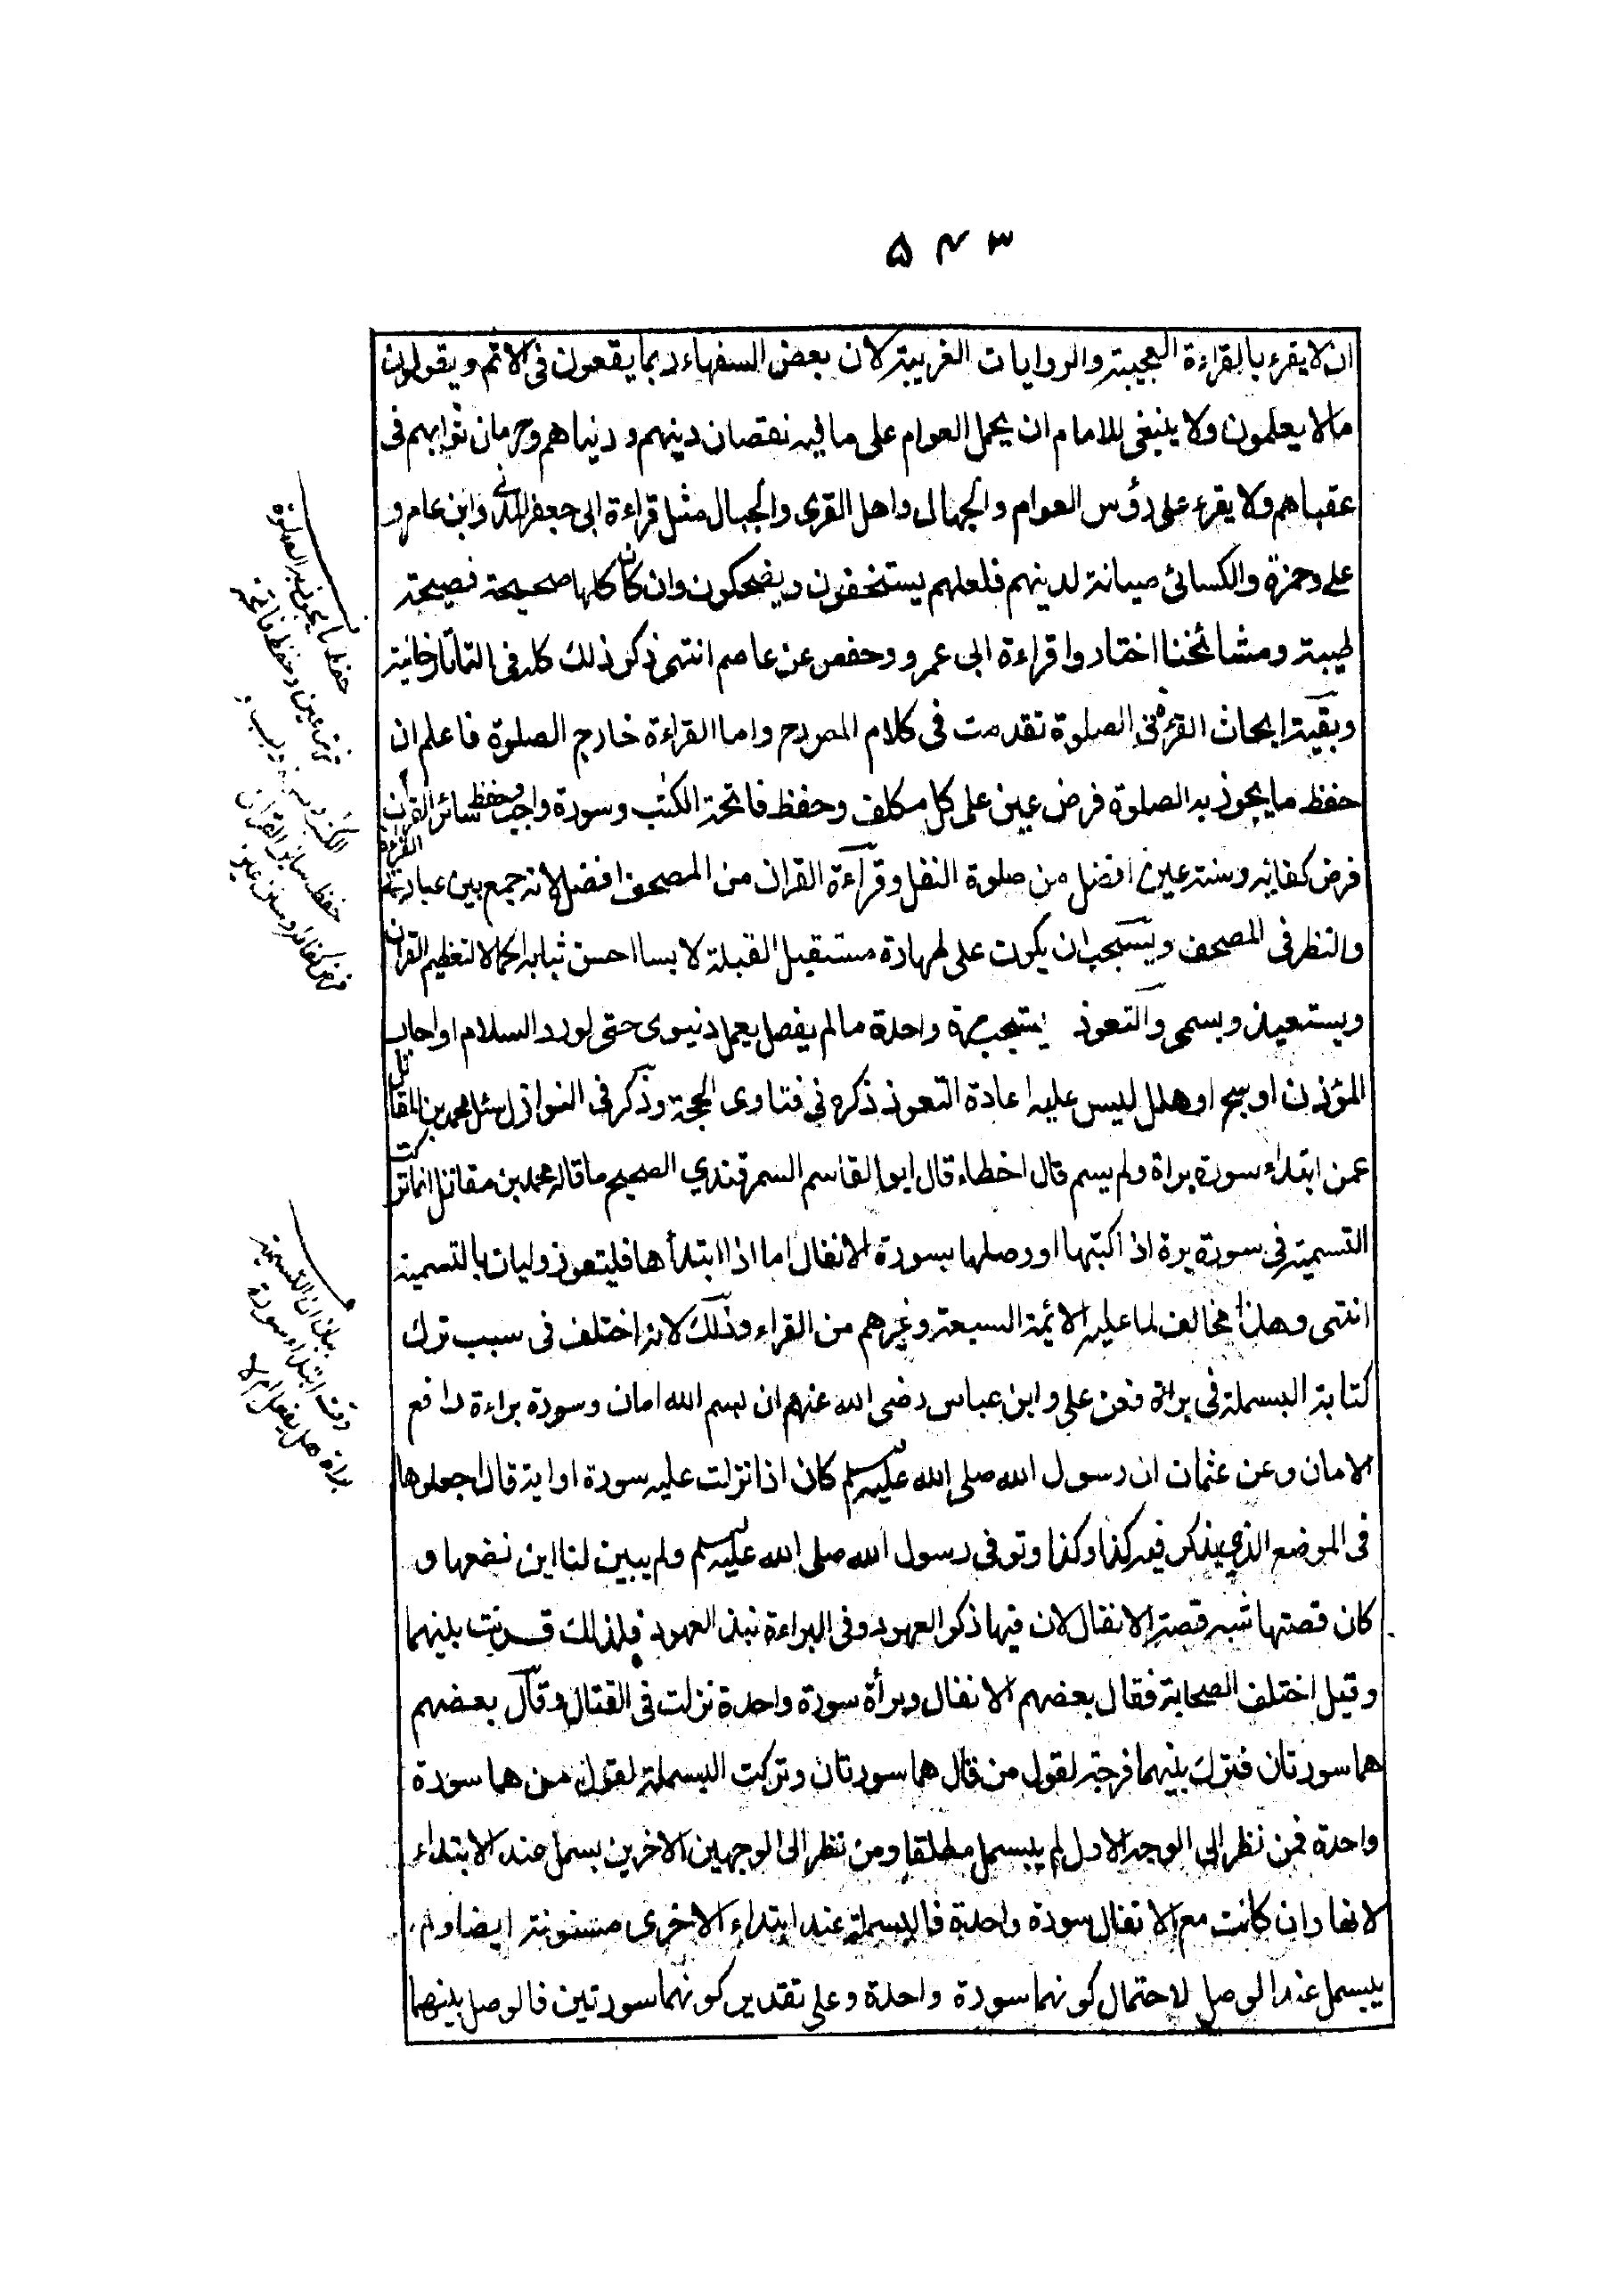 ۵۴۳
ان لا يقرء بالقراءة العجيبة والروايات الغريبة لان بعض السفهاء ربما يقعون فى الاثم ويقولون
مالا يعلمون ولا ينبغى للامام ان يحمل العوام على ما فيه نقصان دينهم و دنياهم وحرمان ثوابهم فى
عقباهم ولا يقرء على رؤس العوام والجهال واهل القرى والجبال مثل قراءة ابى جعفر المدنى وابن عامر و
على وحمزة والكسائى صيانة لدينهم فلعلهم يستخفون ويضحكون وان كان كلها صحيحة فصيحة
طيبة ومشائخنا اختاروا قراءة ابى عمرو وحفص عن عاصم انتهى ذكر ذلك كله فى التاتارخانية
وبقية ابحاث القرءة فى الصلوة تقدمت فى كلام المص رح واما القراءة خارج الصلوة فاعلم ان
حفظ ما يجوز به الصلوة فرض عين على كل مكلف وحفظ فاتحة الكتب وسورة واجب وحفظ سائر القرآن
فرض كفاية وسنة عين افضل من صلوة النفل وقرآءة القران من المصحف افضل لانه جمع بين عبادتى القراءة
والنظر فى المصحف ويستحب ان يكون على طهارة مستقبل القبلة لابسا احسن ثيابه اكمالا لتعظيم القران
ويستعيذ ويسمى والتعوذ يستحب مرة واحدة مالم يفصل بعمل دنيوى حتى لو رد السلام او اجاب
المؤذن او سبح او هلل ليس عليه اعادة التعوذ ذكره فى فتاوى الحجة وذكر فى النوازل سئل محمد بن مقاتل
عمن ابتداء سورة براة ولم يسم قال اخطاء قال ابو القاسم السمرقندي الصحيح ما قاله محمد بن مقاتل انما تركت
التسمية فى سورة برة اذا كتبها او وصلها بسورة الانفال اما اذا ابتدأها فليتعوذ وليات بالتسمية
انتهى وهذا مخالف لما عليه الائمة السبعة وغيرهم من القراء وذلك لانه اختلف فى سبب ترك
كتابة البسملة فى براة فعن على وابن عباس رضى الله عنهم ان بسم الله امان وسورة براءة رافع
الامان وعن عثمان ان رسول الله صلى الله عليه وسلم كان اذا نزلت عليه سورة او اية قال اجعلوها
فى الموضع الذي يذكر فيه كذا وكذا وتوفى رسول الله صلى الله عليه وسلم ولم يبين لنا اين نضعها و
كان قصتها شبه قصة الانفال لان فيها ذكر العهود وفى البراءة نبذ العهود فلذلك قرنت بينهما
وقيل اختلف الصحابة فقال بعضهم الانفال وبرأة سورة واحدة نزلت فى القتال وقال بعضهم
هما سورتان فترك بينهما فرجة لقول من قال هما سورتان وتركت البسملة لقول من هما سورة
واحدة فمن نظر الى الوجه الاول لم يبسمل مطلقا ومن نظر الى الوجهين الاخرين بسمل عند الابتداء
لانها وان كانت مع الانفال سورة واحدة فالبسملة عند ابتداء الاخرى مسنونة ايضا ولم
يبسمل عند الوصل لاحتمال كونهما سورة واحدة وعلى تقدير كونهما سورتين فالوصل بينهما
حفظ ما يجوز به الصلوة
فرض عين وحفظ فاتحة
حفظ سائر القران
فرض كفاية وسنة عين
بيان ان التسمية
وقت ابتداء سورة
براة هل يفعل ام لا